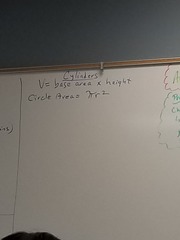 Cylinders
V= base area x height
Circle Area= πr²